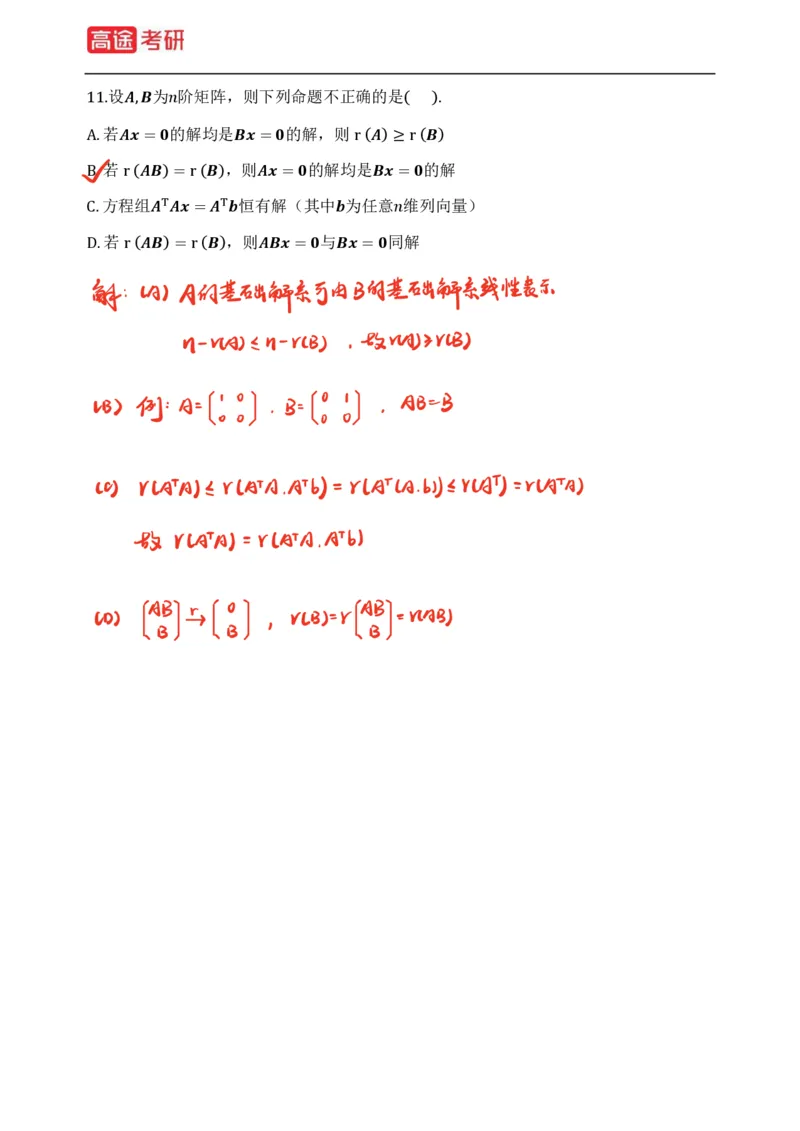 高途 考研
11.设A,B为n阶矩阵，则下列命题不正确的是( ).
A.若Ax=0的解均是Bx=0的解，则 r(A)≥r(B)
B.若 r(AB)=r(B)，则Ax=0的解均是Bx=0的解
C.方程组AᵀAx=Aᵀb恒有解（其中b为任意n维列向量）
D.若 r(AB)=r(B)，则ABx=0与Bx=0同解
解：(A) A的基础解系可由B的基础解系线性表示
n-r(A)≤n-r(B)，故r(A)≥r(B)
(B) 例：A=[1 0; 0 0]，B=[0 1; 0 0]，AB=B
(C) r(AᵀA)≤r(AᵀA,Aᵀb)=r(Aᵀ(A,b))≤r(Aᵀ)=r(AᵀA)
故 r(AᵀA)=r(AᵀA,Aᵀb)
(D) [AB; B] r→ [0; B]，r(B)=r[AB; B]=r(AB)